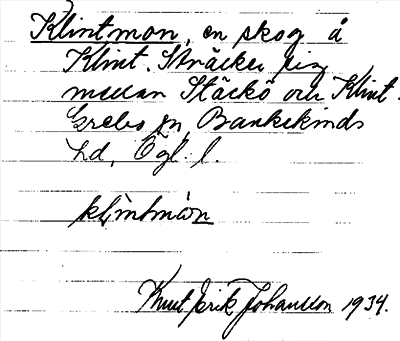 Klintmon, en skog å
Klint. Sträcker sig
mellan Stäckö och Klint.
Grebo sn, Bankekinds
hd, Ögl. l.
klintmon
Knut Erik Johansson 1934.